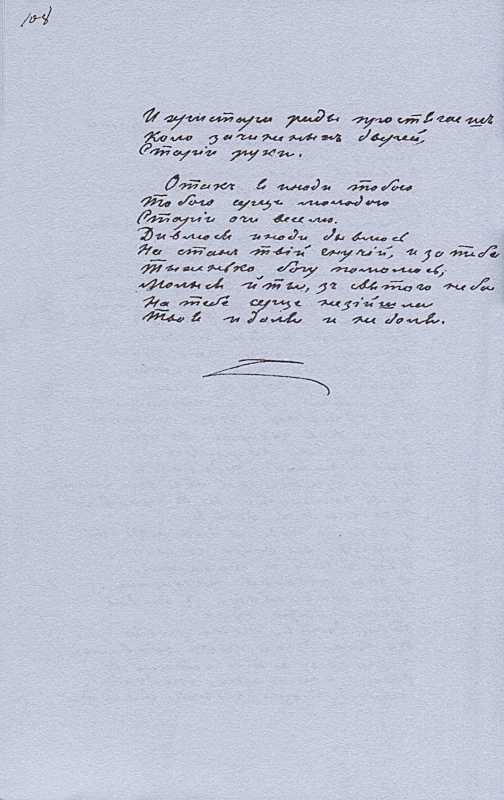 108
И христа ради простягаешъ
Коло зачиненыхъ дверей,
Старіи руки.
Отакъ я иноди тобою
Тобою серце молодою
Старіи очи веселю.
Дивлюся иноди дывлюсь
На станъ твій гнучій, и за тебе
Тыхенько богу помолюсь,
Молысь й ты, зъ святого неба
На тебе серце незійшла
Твоя и доля и не доля.